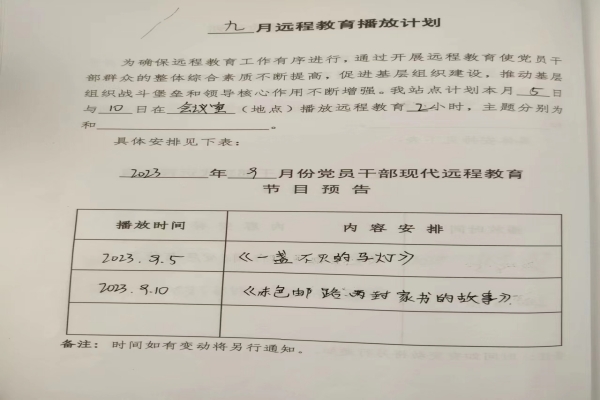 九月远程教育播放计划
为确保远程教育工作有序进行，通过开展远程教育使党员干
部群众的整体综合素质不断提高，促进基层组织建设，推动基层
组织战斗堡垒和领导核心作用不断增强。我站点计划本月5日
与10日在会议室（地点）播放远程教育2小时，主题分别为
和。
具体安排见下表：
2023年9月份党员干部现代远程教育
节目预告
播放时间 内容安排
2023.9.5 《一盏不灭的马灯》
2023.9.10 《本色邮路 两封家书的故事》
备注：时间如有变动将另行通知。